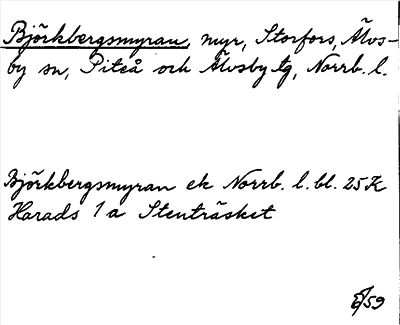 Björkbergsmyran, myr, Storfors, Älvs-
by sn, Piteå och Älvsby tg, Norrb. l.
Björkbergsmyran ek Norrb. l. bl. 25 K
Harads 1 a Stenträsket
/59